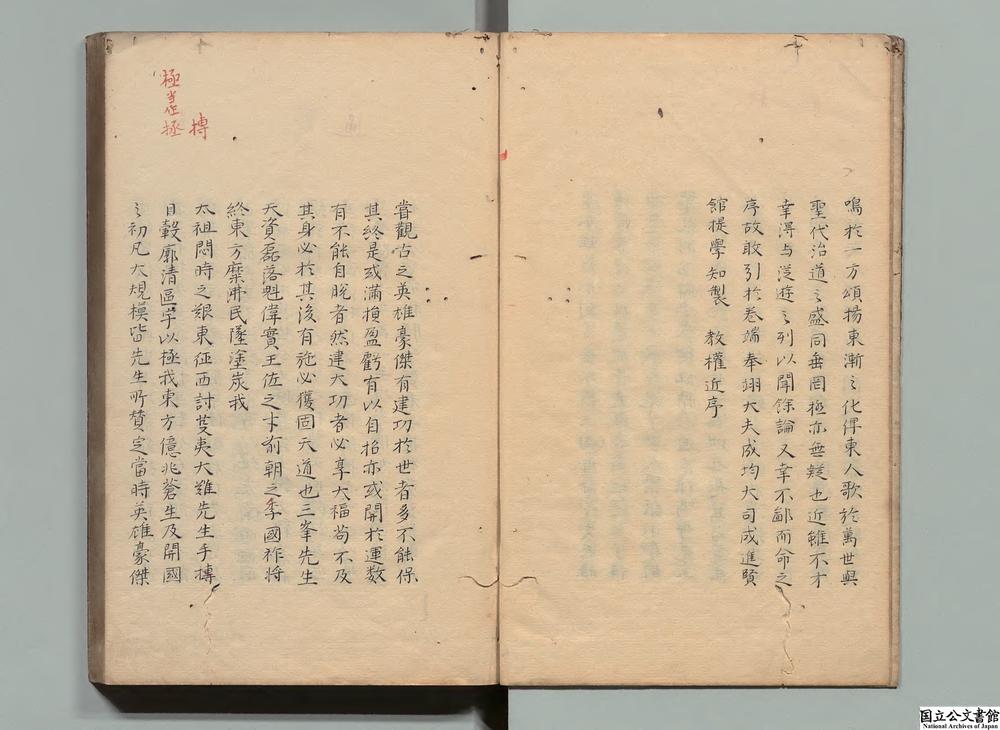 鳴於一方頌揚東漸之化俾東人歌於萬世與
聖代治道之盛同垂罔極亦無疑也近雖不才
幸淂与従遊之列以聞餘論又幸不鄙而命之
序故敢引於巻端奉翊大夫成均大司成進賢
館提學知製　教權近序
極当作拯
摶
甞觀古之英雄豪傑有建功於世者多不能保
其終是或滿損盈虧有以自招亦或開於運数
有不能自脱者然建大功者必享大福苟不及
其身必於其後有施必獲固天道也三峯先生
天資磊落魁偉實王佐之才前朝之季國祚将
終東方糜沸民墜塗炭我
太祖悶時之艱東征西討芟夷大難先生手摶
日轂廓清區宇以極我東方億兆蒼生及開國
之初凡大規模皆先生所賛定當時英雄豪傑
国立公文書館
National Archives of Japan